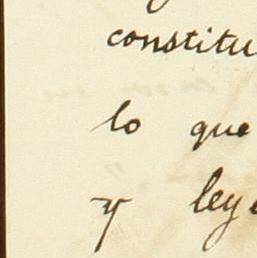 constitu
lo que
y ley